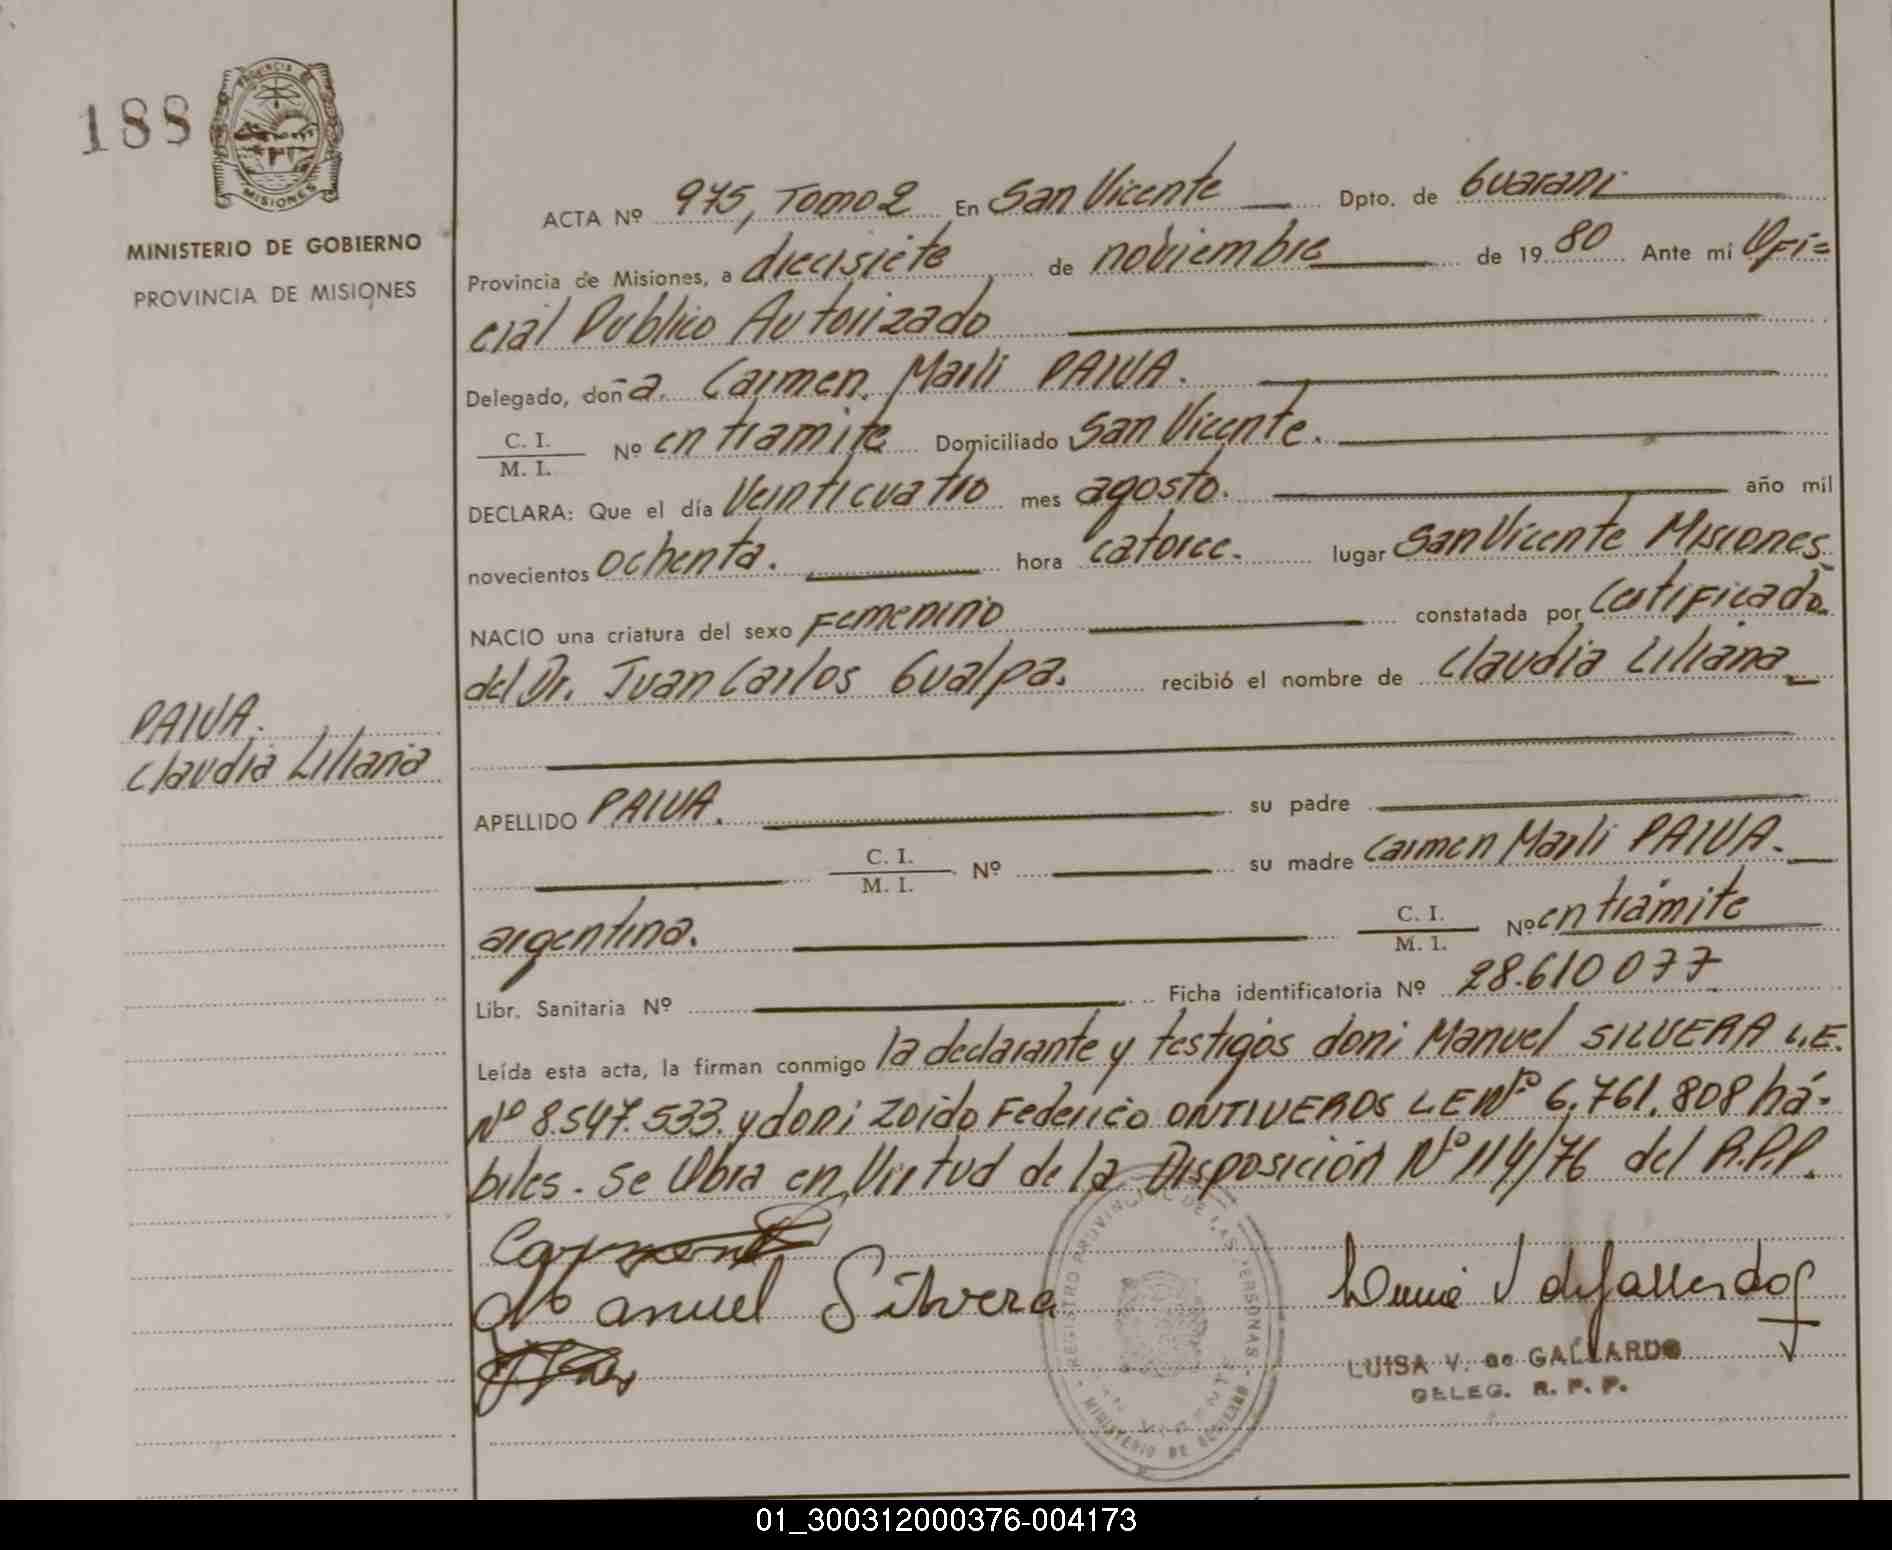 188
PROVINCIA DE
MISIONES
MINISTERIO DE GOBIERNO
PROVINCIA DE MISIONES
ACTA Nº 975, Tomo 2 En San Vicente Dpto. de Guarani
Provincia de Misiones, a diecisiete de noviembre de 19 80 Ante mí Ofi=
cial Publico Autorizado
Delegado, doña. Carmen Marli PAIVA.
C. I.
M. I. Nº en tramite Domiciliado San Vicente.
DECLARA: Que el día Veinticuatro mes agosto. año mil
novecientos ochenta. hora catorce. lugar San Vicente Misiones
NACIO una criatura del sexo Femenino constatada por Certificado
del Dr. Juan Carlos Gualpa. recibió el nombre de Claudia Liliana
PAIVA.
Claudia Liliana
APELLIDO PAIVA. su padre
C. I.
M. I. Nº su madre Carmen Marli PAIVA.
argentina. C. I.
M. I. Nº en trámite
Libr. Sanitaria Nº Ficha identificatoria Nº 28.610077
Leída esta acta, la firman conmigo la declarante y testigos doni Manuel SILVERA L.E.
Nº 8.547.533. y doni Zoido Federico ONTIVEROS LE Nº 6.761.808 há-
biles. Se Obra en Virtud de la Disposición Nº 114/76 del R.P.P.
Manuel Silvera
REGISTRO PROVINCIAL DE LAS PERSONAS
SAN VICENTE
MINISTERIO DE GOBIERNO
LUISA V. de GALLARDO
DELEG. R. P. P.
01_300312000376-004173